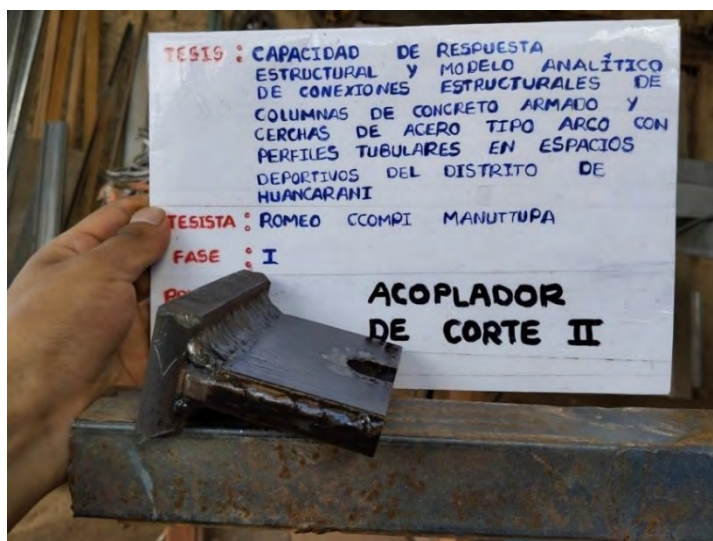 TESIS : CAPACIDAD DE RESPUESTA
ESTRUCTURAL Y MODELO ANALÍTICO
DE CONEXIONES ESTRUCTURALES DE
COLUMNAS DE CONCRETO ARMADO Y
CERCHAS DE ACERO TIPO ARCO CON
PERFILES TUBULARES EN ESPACIOS
DEPORTIVOS DEL DISTRITO DE
HUANCARANI
TESISTA : ROMEO CCOMPI MANUTTUPA
FASE : I
ACOPLADOR
DE CORTE II